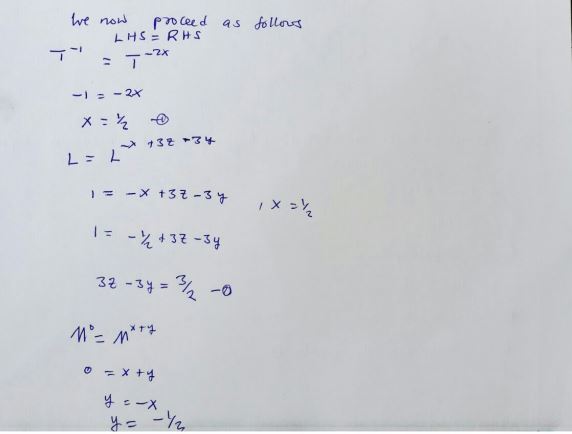 We now proceed as follows
LHS = RHS
T⁻¹ = T⁻²ˣ
-1 = -2x
x = ½ ⊕
L = L^-x +3z -3y
1 = -x +3z -3y , x = ½
1 = -½ +3z -3y
3z -3y = 3/2 -⓪
M⁰ = M^x+y
0 = x + y
y = -x
y = -½